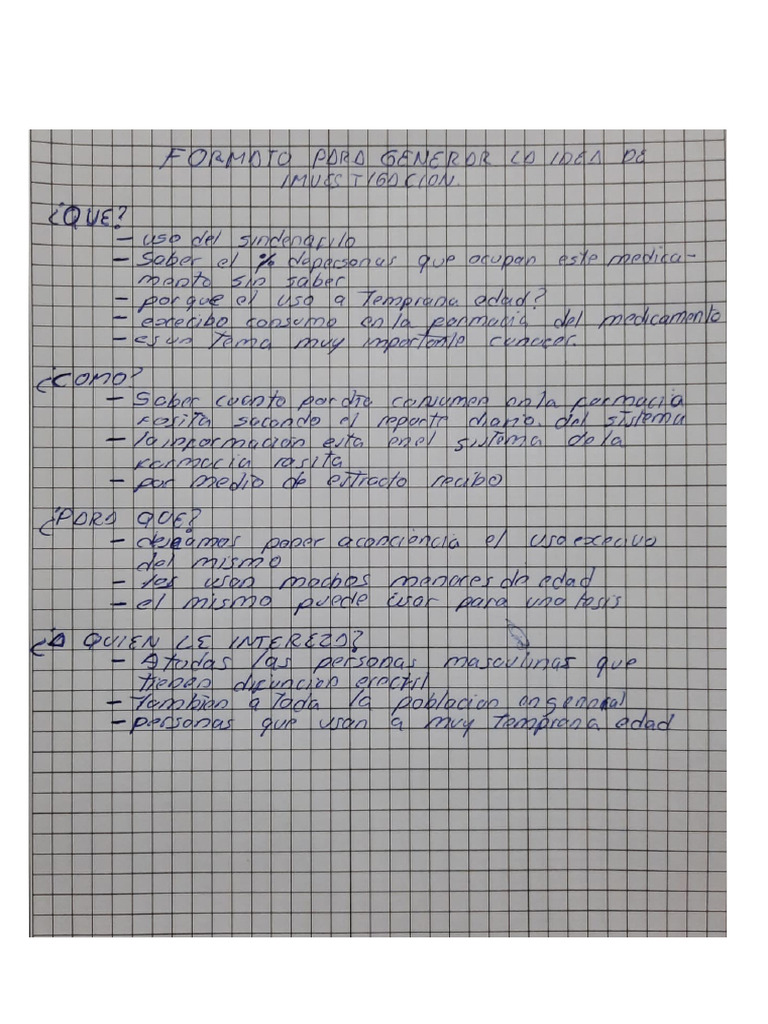 FORMATO PARA GENERAR LA IDEA DE
IMVESTIGACION.
¿QUE?
- uso del sindenafilo
- Saber el % depersonas que ocupan este medica-
mento sin saber
- por que el uso a Temprana edad?
- execibo consumo en la farmacia del medicamento
- es un tema muy importante conocer.
¿COMO?
- Saber cuanto por dia consumen en la farmacia
rosita sacando el reporte diario del sistema
- la informacion esta en el sistema de la
farmacia rosita
- por medio de estracto recibo
¿PARA QUE?
- deseamos poner aconciencia el uso execivo
del mismo
- los usan muchos menores de edad
- el mismo puede usar para una tesis
¿A QUIEN LE INTEREZA?
- A todas las personas masculinas que
tienen difuncion erectil
- Tambien a toda la poblacion en general
- personas que usan a muy temprana edad